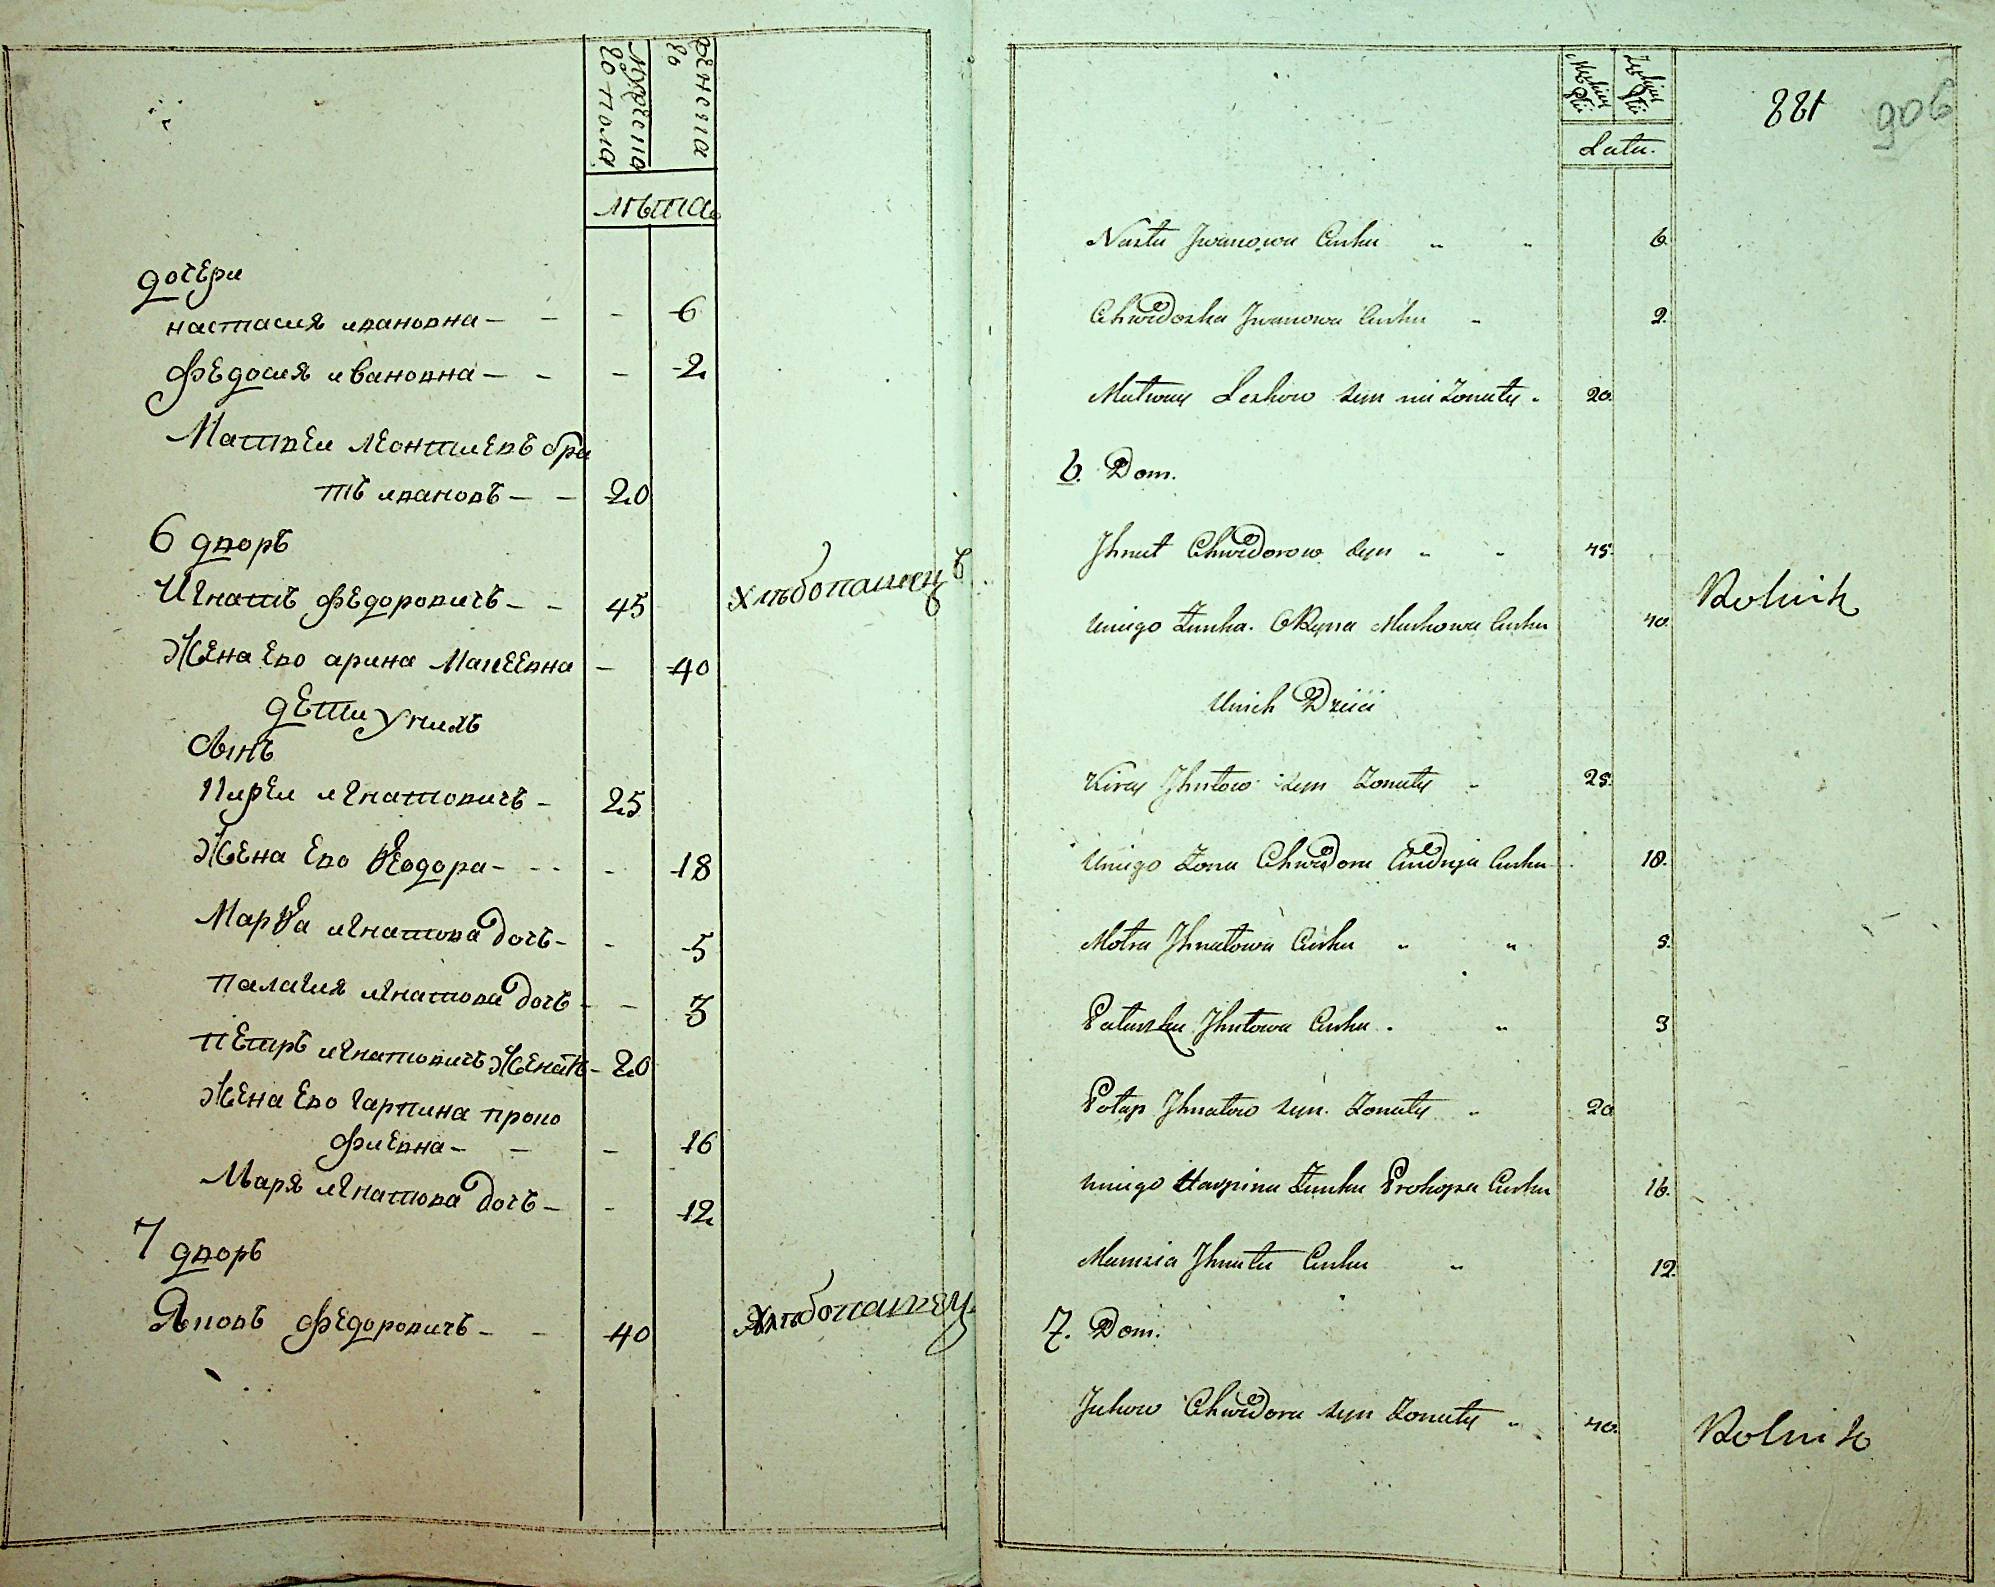 мужеска
го пола
женска
го
лѣта
дочери
настасия ивановна — — - 6
федосия ивановна — - - 2
Матвеи леонтиевъ бра
тъ ивановъ — — 20
6 дворъ
Игнатъ федоровичъ — — 45 хлѣбопашецъ
Жена ево арина Матеевна - 40
дети у нихъ
Сынъ
Киреи игнатовичъ - 25
Жена ево Ѳеодора - - - - 18
Марѳа игнатова дочь - - 5
палагия игнатова дочь - - 3
петръ игнатовичъ Женатъ - 20
Жена ево гарпина проко
фиевна - — - 16
Маря игнатова дочь - - 12
7 дворъ
Яковъ федоровичъ - - 40 хлѣбопашецъ
Męskiey
Płci
Żeńskiey
Płci
881 906
Lata.
Nasta Jwanowa Curka „ „ 6.
Chwedoska Jwanowa Curka „ 2.
Matwey Leskow syn nie Zonaty „ 20
6. Dom.
Jhnat Chwedorow syn „ „ 45.
Uniego Żonka. Oryna Markowa Curka 40.
Rolnik
Unich Dzieci
Kirey Jhnatow syn Zonaty „ 25.
Uniego Zona Chwedora Andryja Curka 18.
Motra Jhnatowa Curka „ „ 5.
Palaszka Jhnatowa Curka „ „ 3
Potap Jhnatow syn. Zonaty „ 20
uniego Harpina Żonka Prokopa Curka 16.
Marysia Jhnata Curka „ 12.
7. Dom.
Jakow Chwedora syn Zonaty „ 40.
Rolnik